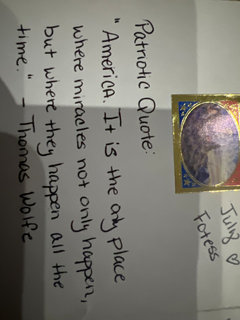 Patriotic Quote:
"America. It is the only place
where miracles not only happen,
but where they happen all the
time." - Thomas Wolfe
July ♡
Fotess